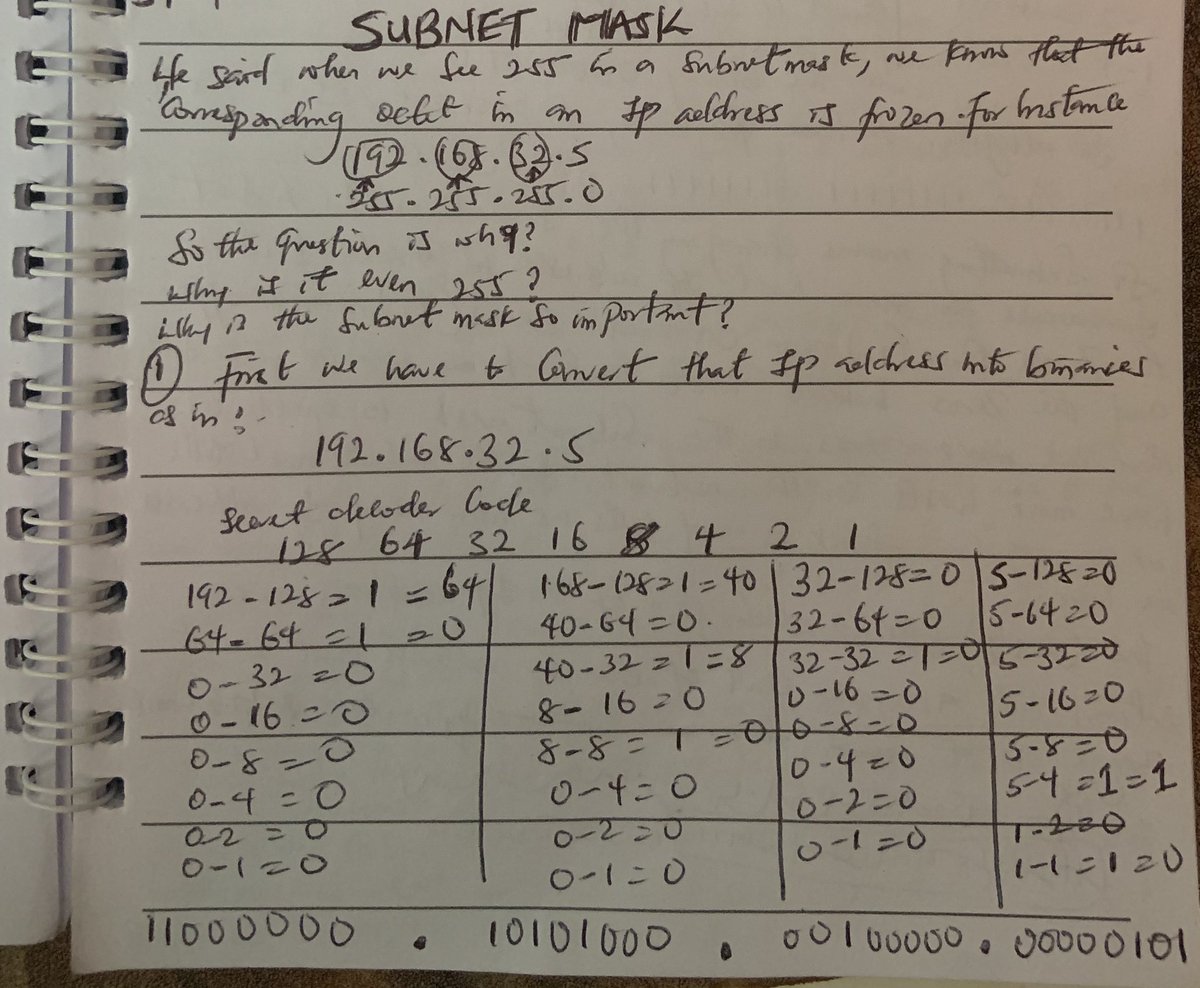 SUBNET MASK
He said when we see 255 in a subnet mask, we know that the
corresponding octet in an Ip address is frozen. For Instance
192.168.32.5
255.255.255.0
So the question is why?
Why is it even 255?
Why is the subnet mask so important?
① First we have to Convert that Ip address into binaries
as in:-
192.168.32.5
Secret decoder Code
128 64 32 16 8 4 2 1
192-128=1=64 168-128=1=40 32-128=0 5-128=0
64-64=1=0 40-64=0. 32-64=0 5-64=0
0-32=0 40-32=1=8 32-32=1=0 5-32=0
0-16=0 8-16=0 0-16=0 5-16=0
0-8=0 8-8=1=0 0-8=0 5-8=0
0-4=0 0-4=0 0-4=0 5-4=1=1
0-2=0 0-2=0 0-2=0 1-2=0
0-1=0 0-1=0 0-1=0 1-1=1=0
11000000 . 10101000 . 00100000 . 00000101